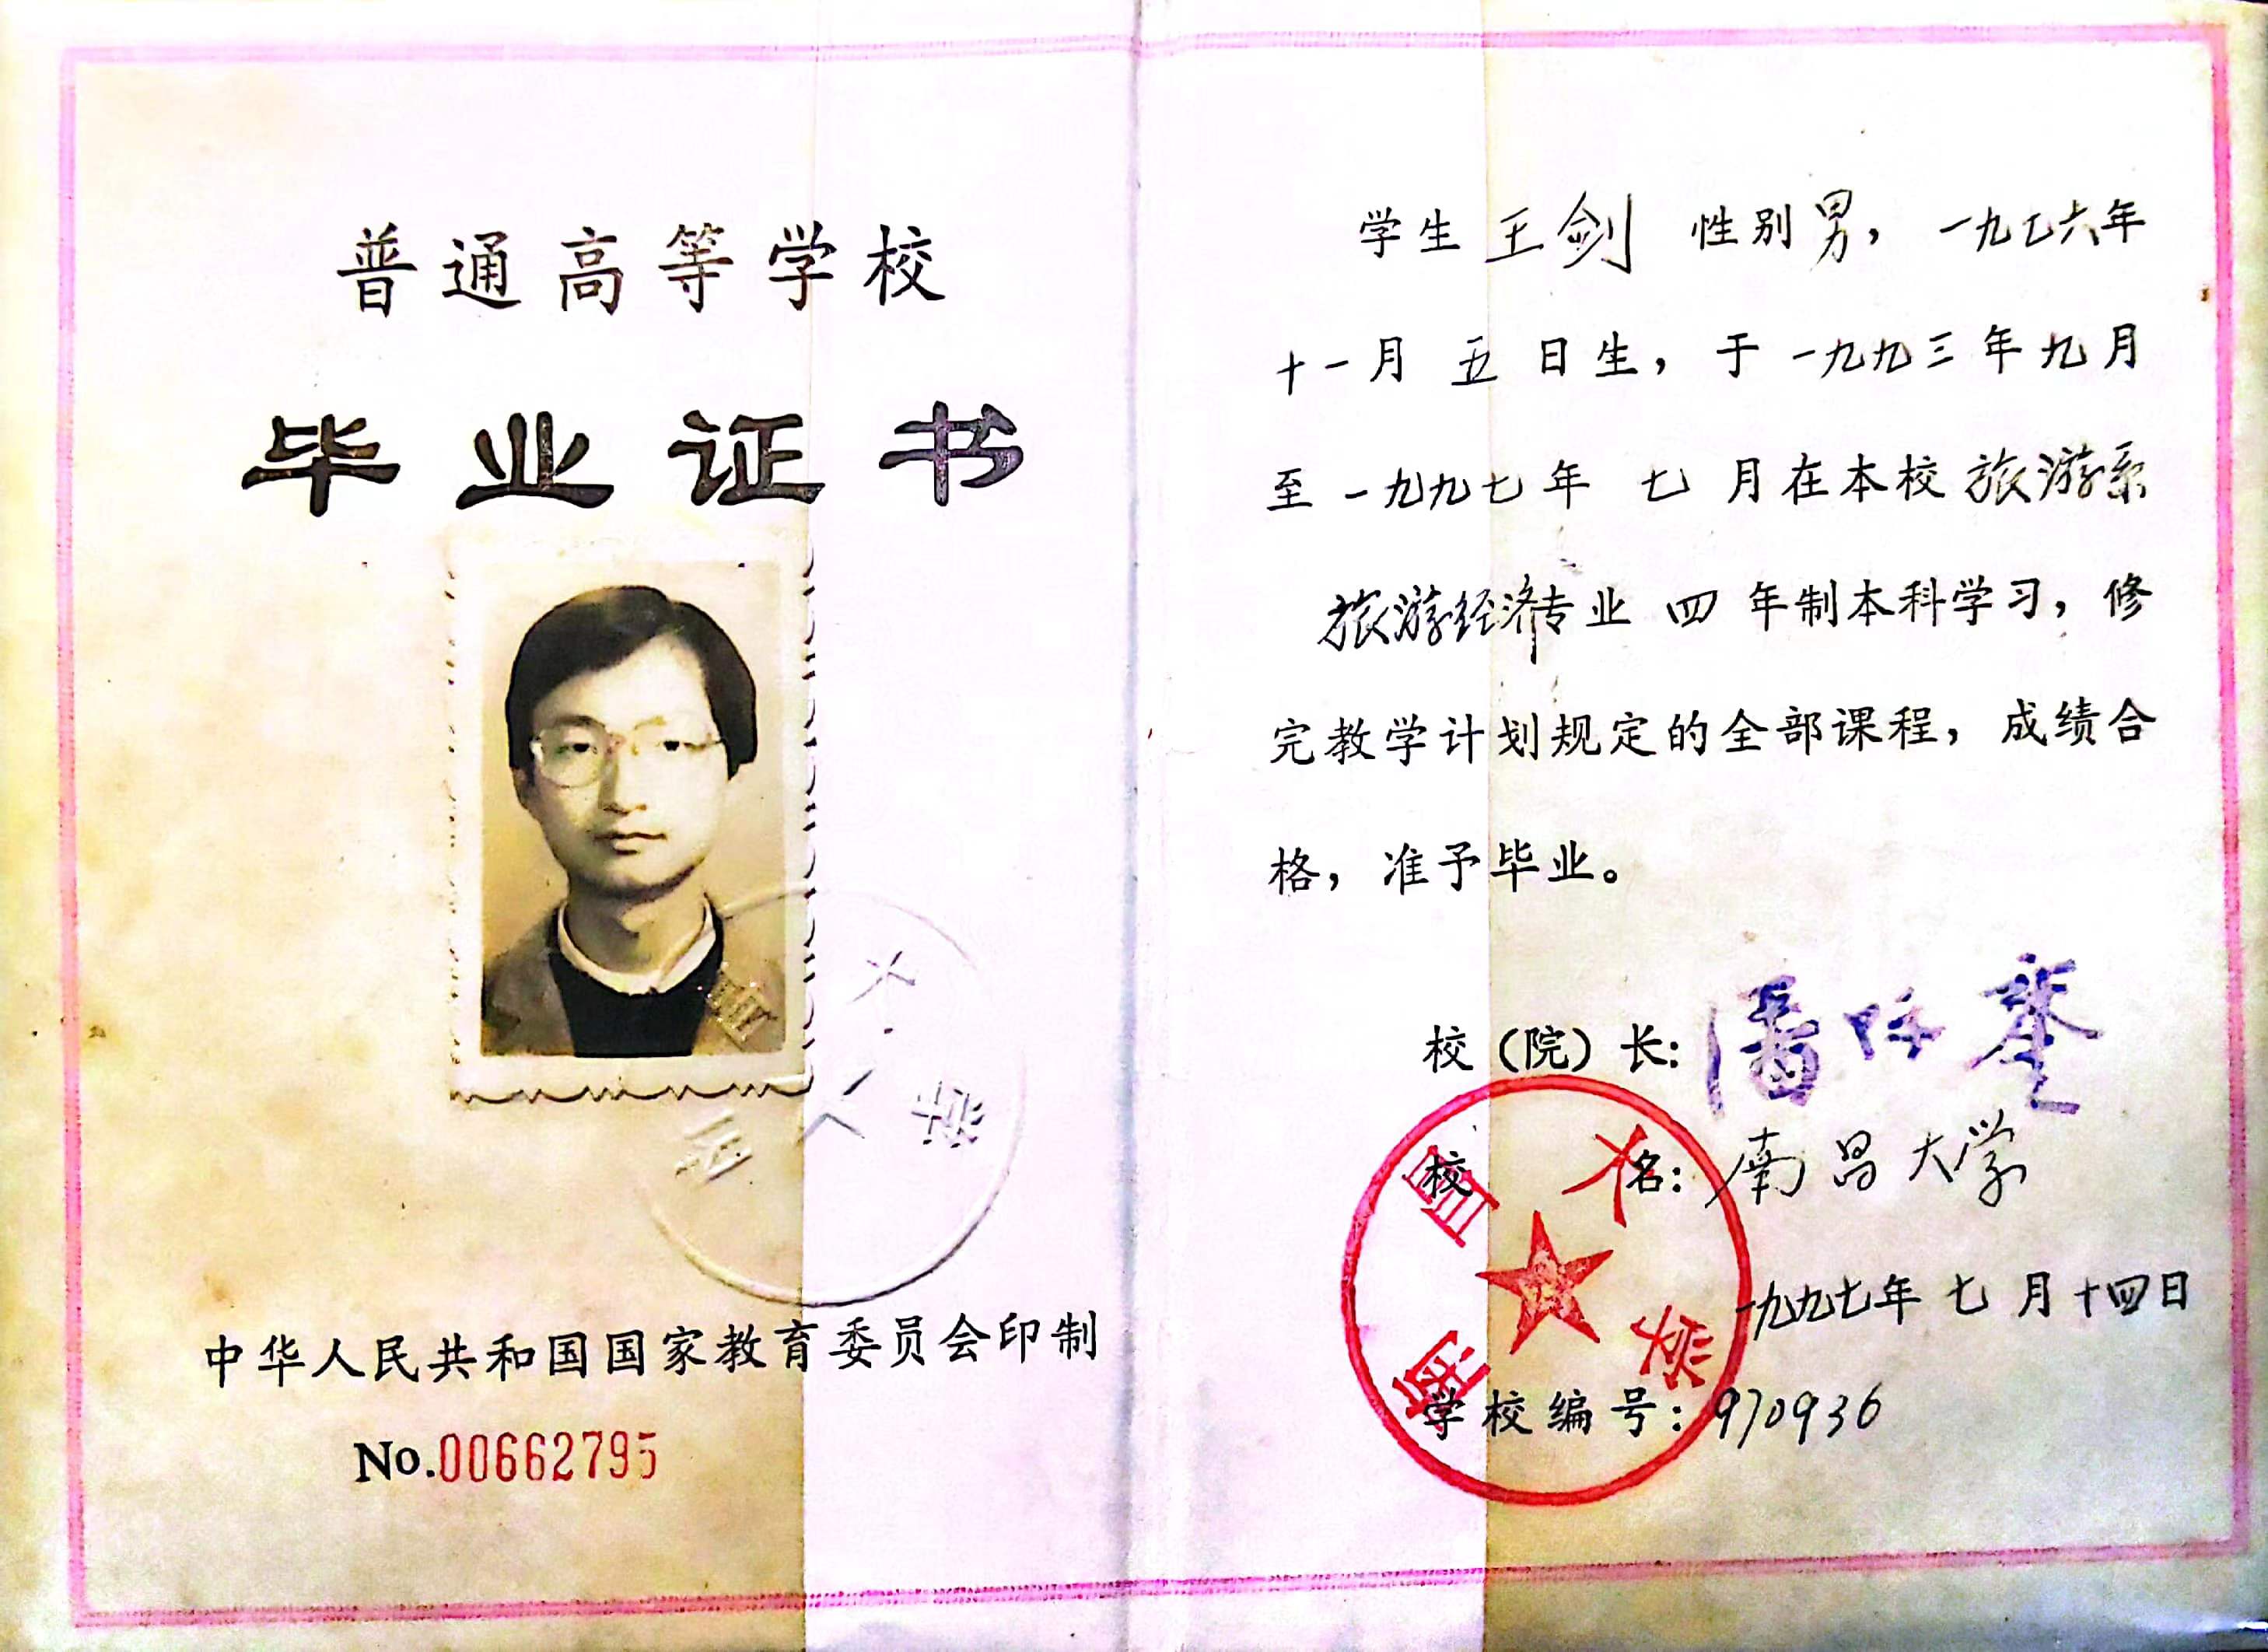 普通高等学校
毕业证书
大
昌
学
中华人民共和国国家教育委员会印制
No.00662795
学生 王剑 性别 男， 一九七六年
十一月 五 日生，于 一九九三 年 九 月
至 一九九七 年 七 月在本校 旅游系
旅游经济专业 四 年制本科学习，修
完教学计划规定的全部课程，成绩合
格，准予毕业。
校（院）长：潘际銮
校 名：南昌大学
南昌大学
一九九七年 七 月十四日
学校编号：970936